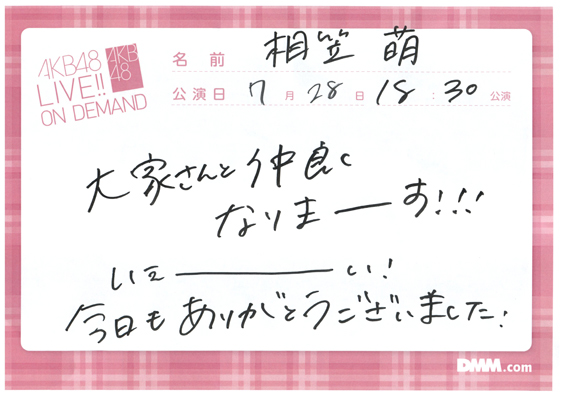 AKB48
LIVE!!
ON DEMAND
AKB
48
名前 相笠 萌
公演日 7月28日 18:30公演
大家さんと仲良く
なりまーす!!!
いえ――い!
今日もありがとうございました!
DMM.com